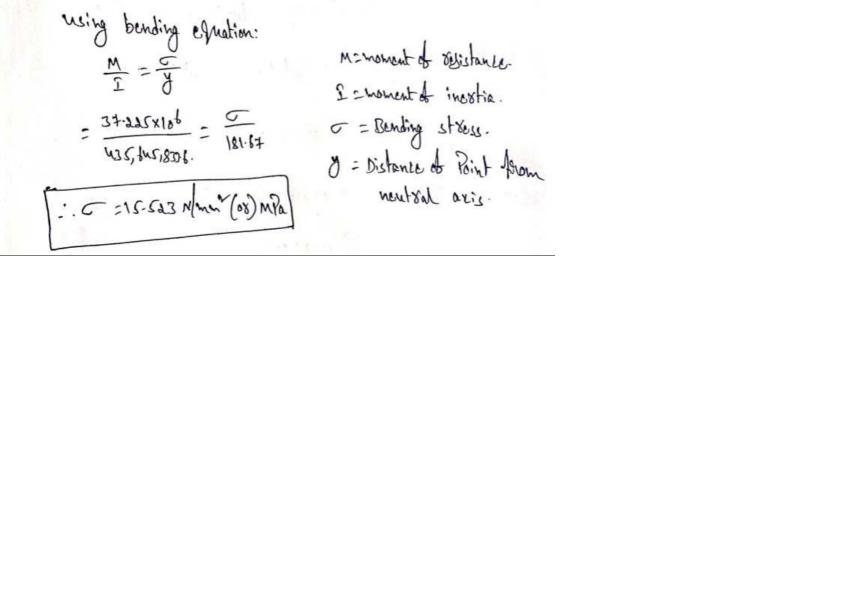 using bending equation:
M/I = σ/y
= 37.225×10⁶ / 435,645,833.6. = σ / 181.67
∴ σ = 15.523 N/mm² (or) MPa
M = moment of resistance.
I = moment of inertia.
σ = Bending stress.
y = Distance of Point from
neutral axis.